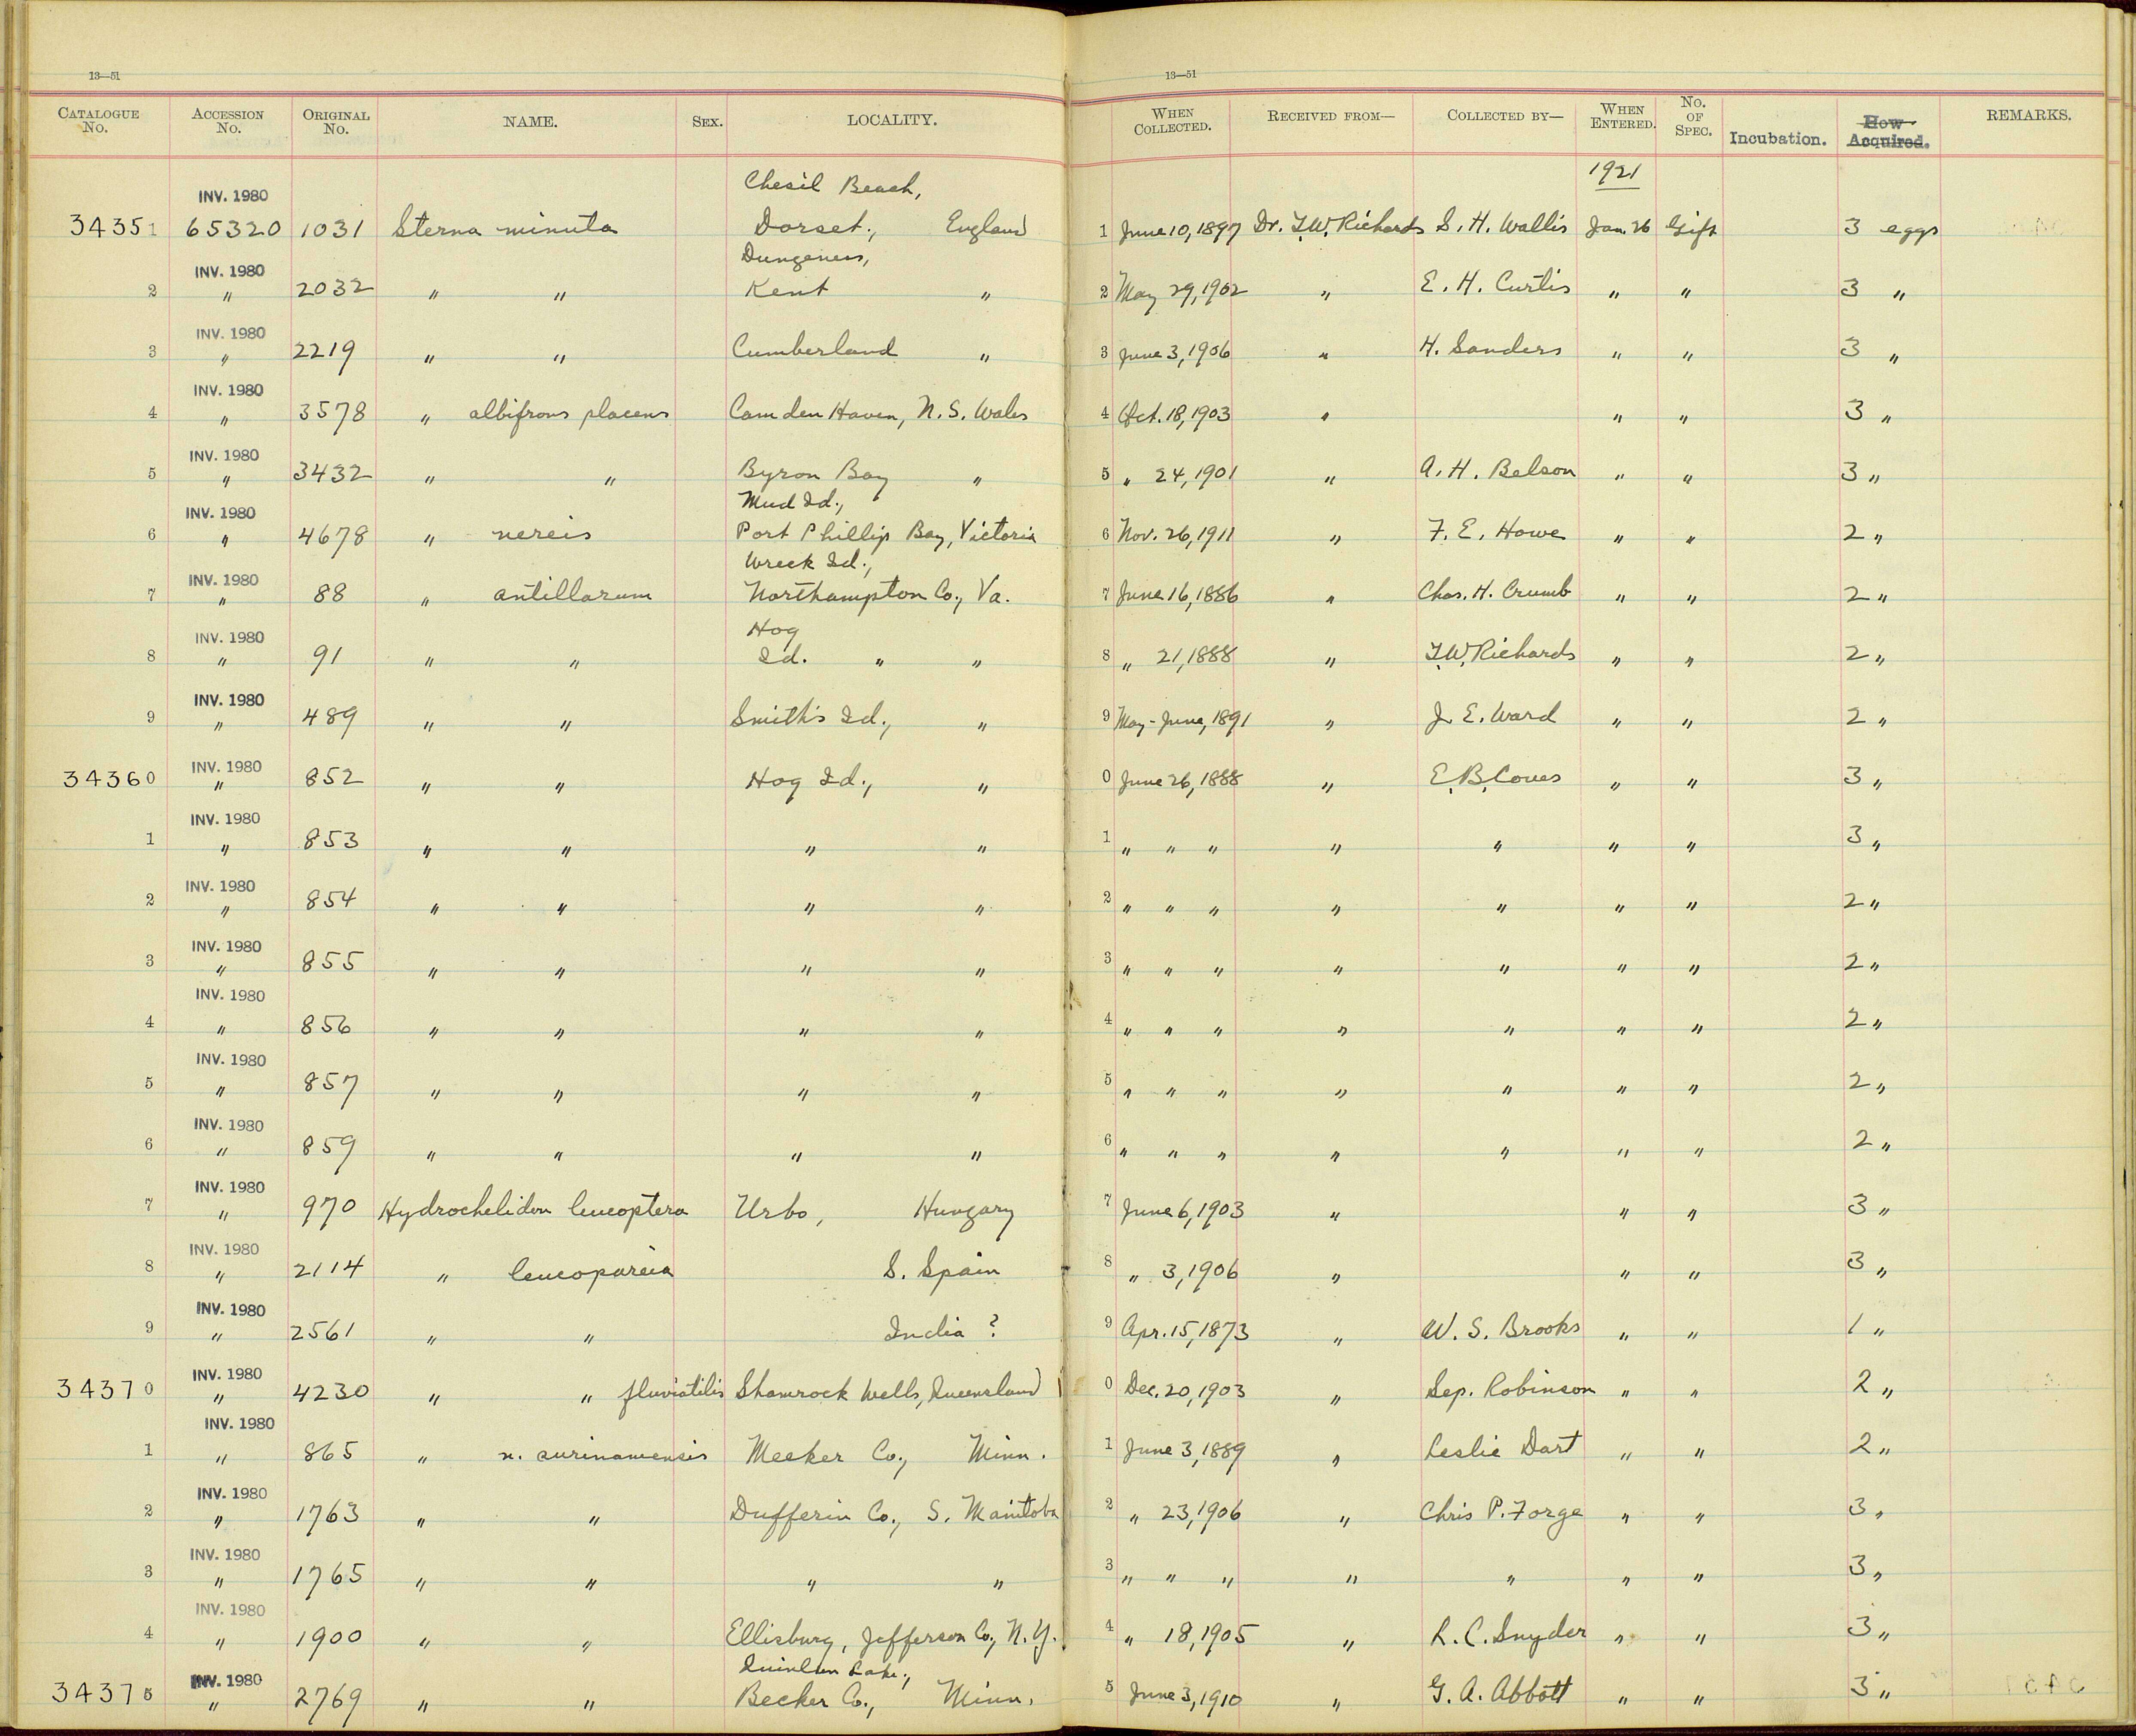 13—51 13—51
CATALOGUE No. ACCESSION No. ORIGINAL No. NAME. SEX. LOCALITY. WHEN COLLECTED. RECEIVED FROM— COLLECTED BY— WHEN ENTERED. No. OF SPEC. Incubation. How Acquired. REMARKS.
1921
Chesil Beach,
INV. 1980
34351 65320 1031 Sterna minuta Dorset., England 1 June 10, 1897 Dr. T.W. Richards S. H. Wallis Jan. 26 Gift 3 eggs
Dungeness,
INV. 1980
2 " 2032 " " Kent " 2 May 29, 1902 " E. H. Curtis " " 3 "
INV. 1980
3 " 2219 " " Cumberland " 3 June 3, 1906 " H. Sanders " " 3 "
INV. 1980
4 " 3578 " albifrons placens Camden Haven, N. S. Wales 4 Oct. 18, 1903 " " " 3 "
INV. 1980
5 " 3432 " " Byron Bay " 5 " 24, 1901 " A. H. Belson " " 3 "
Mud Id.,
INV. 1980
6 " 4678 " nereis Port Phillip Bay, Victoria 6 Nov. 26, 1911 " F. E. Howe " " 2 "
Wreck Id.,
INV. 1980
7 " 88 " antillarum Northampton Co., Va. 7 June 16, 1886 " Chas. H. Crumb " " 2 "
Hog
INV. 1980
8 " 91 " " Id. " " 8 " 21, 1888 " T.W. Richards " " 2 "
INV. 1980
9 " 489 " " Smith's Id., " 9 May - June, 1891 " J. E. Ward " " 2 "
INV. 1980
34360 " 852 " " Hog Id., " 0 June 26, 1888 " E. B. Coues " " 3 "
INV. 1980
1 " 853 " " " " 1 " " " " " " " 3 "
INV. 1980
2 " 854 " " " " 2 " " " " " " " 2 "
INV. 1980
3 " 855 " " " " 3 " " " " " " " 2 "
INV. 1980
4 " 856 " " " " 4 " " " " " " " 2 "
INV. 1980
5 " 857 " " " " 5 " " " " " " " 2 "
INV. 1980
6 " 859 " " " " 6 " " " " " " " 2 "
INV. 1980
7 " 970 Hydrochelidon leucoptera Urbo, Hungary 7 June 6, 1903 " " " 3 "
INV. 1980
8 " 2114 " leucopareia S. Spain 8 " 3, 1906 " " " 3 "
INV. 1980
9 " 2561 " " India ? 9 Apr. 15, 1873 " W. S. Brooks " " 1 "
INV. 1980
34370 " 4230 " " fluviatilis Shamrock Wells, Queensland 0 Dec. 20, 1903 " Sep. Robinson " " 2 "
INV. 1980
1 " 865 " n. surinamensis Meeker Co., Minn. 1 June 3, 1889 " Leslie Dart " " 2 "
INV. 1980
2 " 1763 " " Dufferin Co., S. Manitoba 2 " 23, 1906 " Chris P. Forge " " 3 "
INV. 1980
3 " 1765 " " " " 3 " " " " " " " 3 "
INV. 1980
4 " 1900 " " Ellisburg, Jefferson Co., N. Y. 4 " 18, 1905 " L. C. Snyder " " 3 "
Lake,
INV. 1980
34375 " 2769 " " Becker Co., Minn. 5 June 3, 1910 " G. A. Abbott " " 3 "